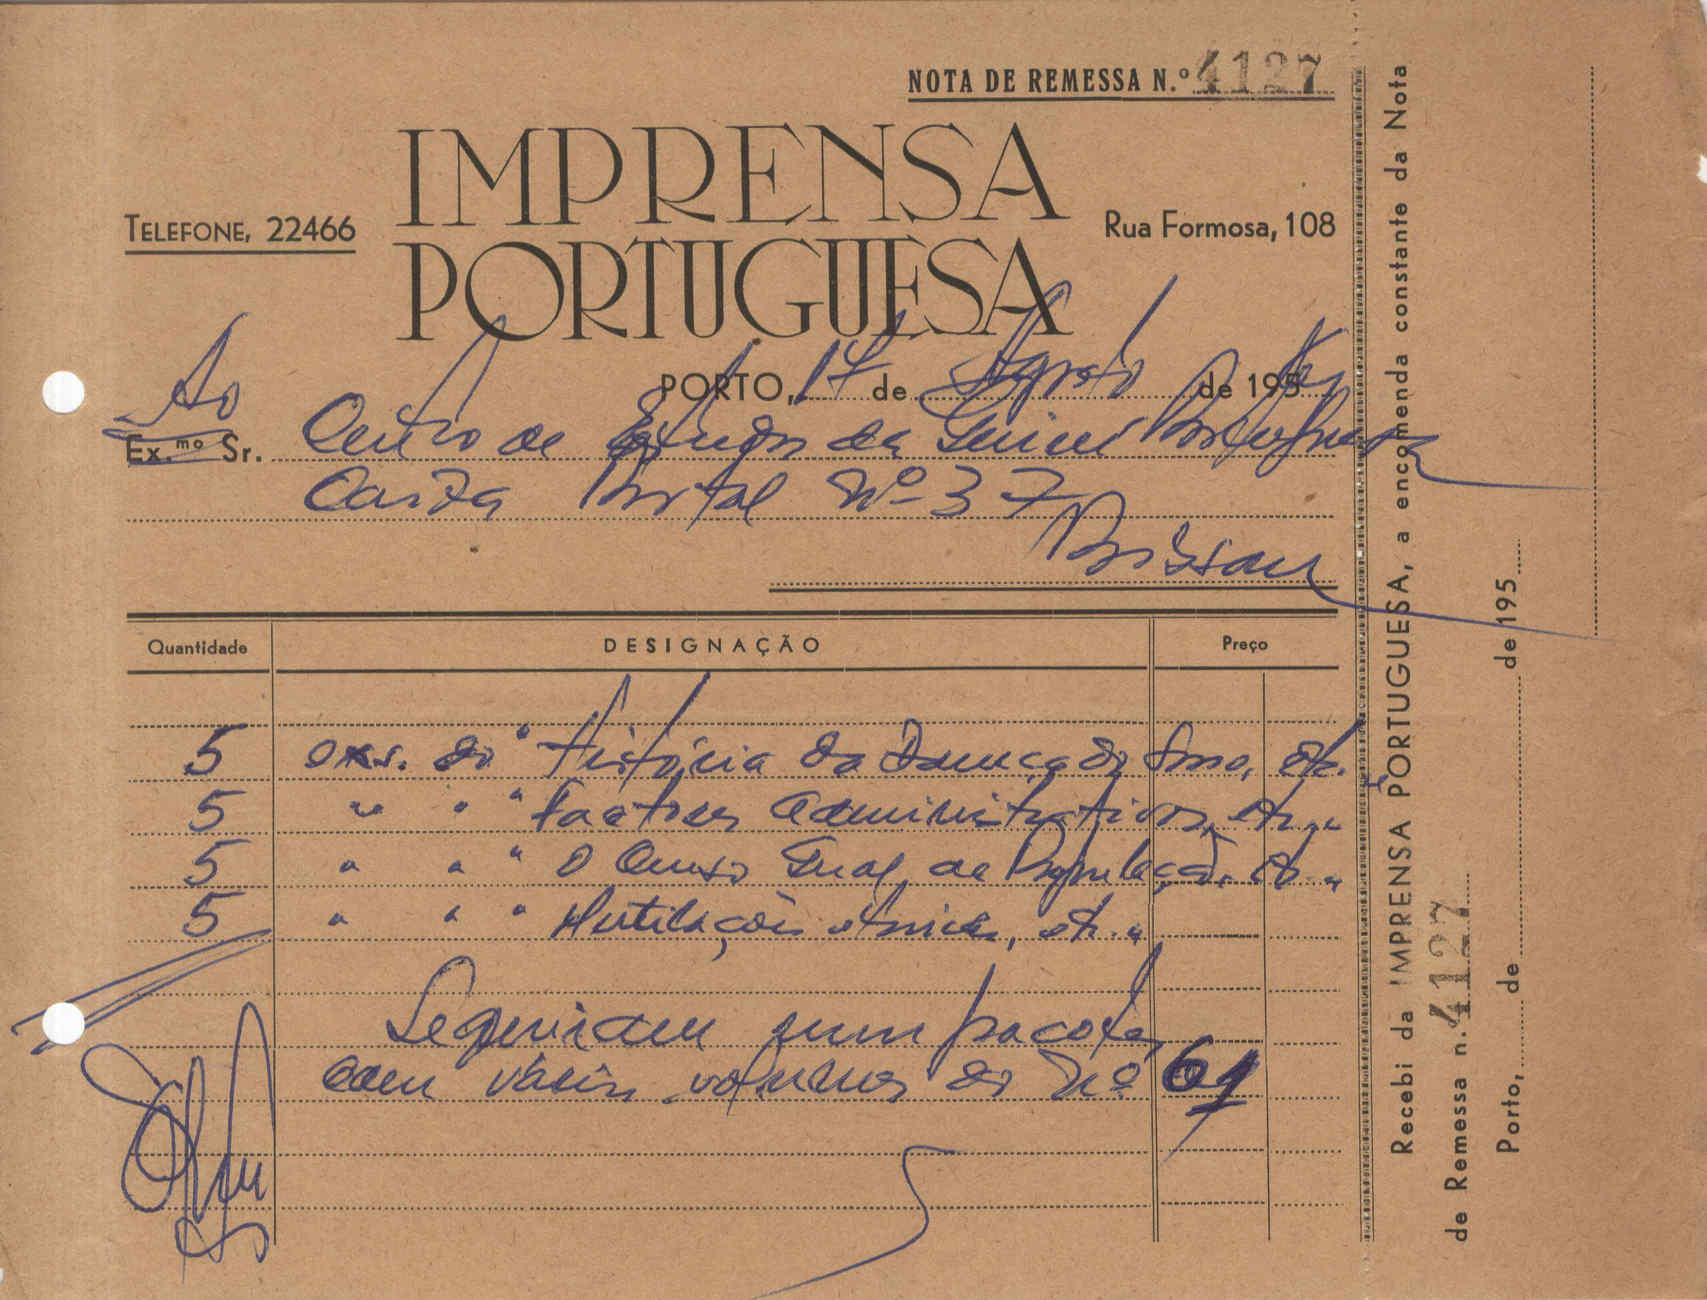 NOTA DE REMESSA N.º 4127
IMPRENSA
PORTUGUESA
TELEFONE, 22466
Rua Formosa, 108
PORTO, 17 de Agosto de 195
Ao
Ex.mo Sr. Centro de Estudos da Guiné Portuguesa
Caixa Postal Nº 37
Bissau
Quantidade DESIGNAÇÃO Preço
5 exs. do " História da Doença do Sono, etc.
5 " " " Factores administrativos, etc. "
5 " " " O Censo Geral da População, etc. "
5 " " " Mutilações étnicas, etc. "
Seguiram num pacote
com vários volumes do nº 61
Recebi da IMPRENSA PORTUGUESA, a encomenda constante da Nota
de Remessa n.º 4127
Porto, de de 195